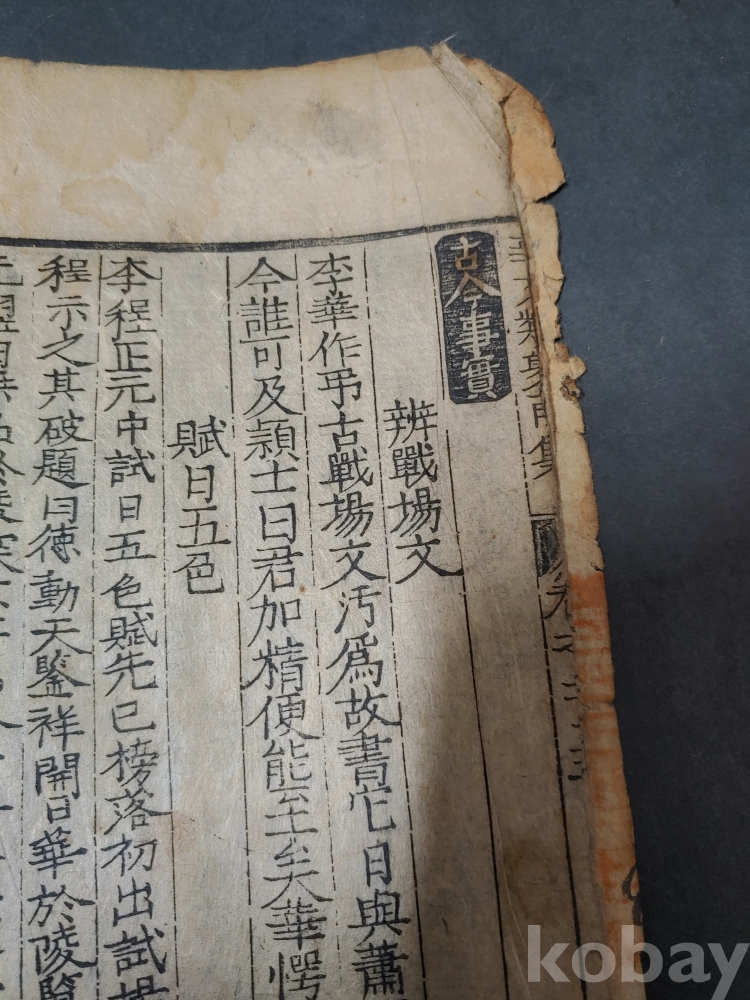 古今事實
辨戰場文
李華作弔古戰場文汚爲故書它日與蕭
今誰可及穎士曰君加精便能至矣華愕
賦日五色
李程正元中試日五色賦先已榜落初出試場
程示之其破題曰德動天鑒祥開日華於陵覽
kobay